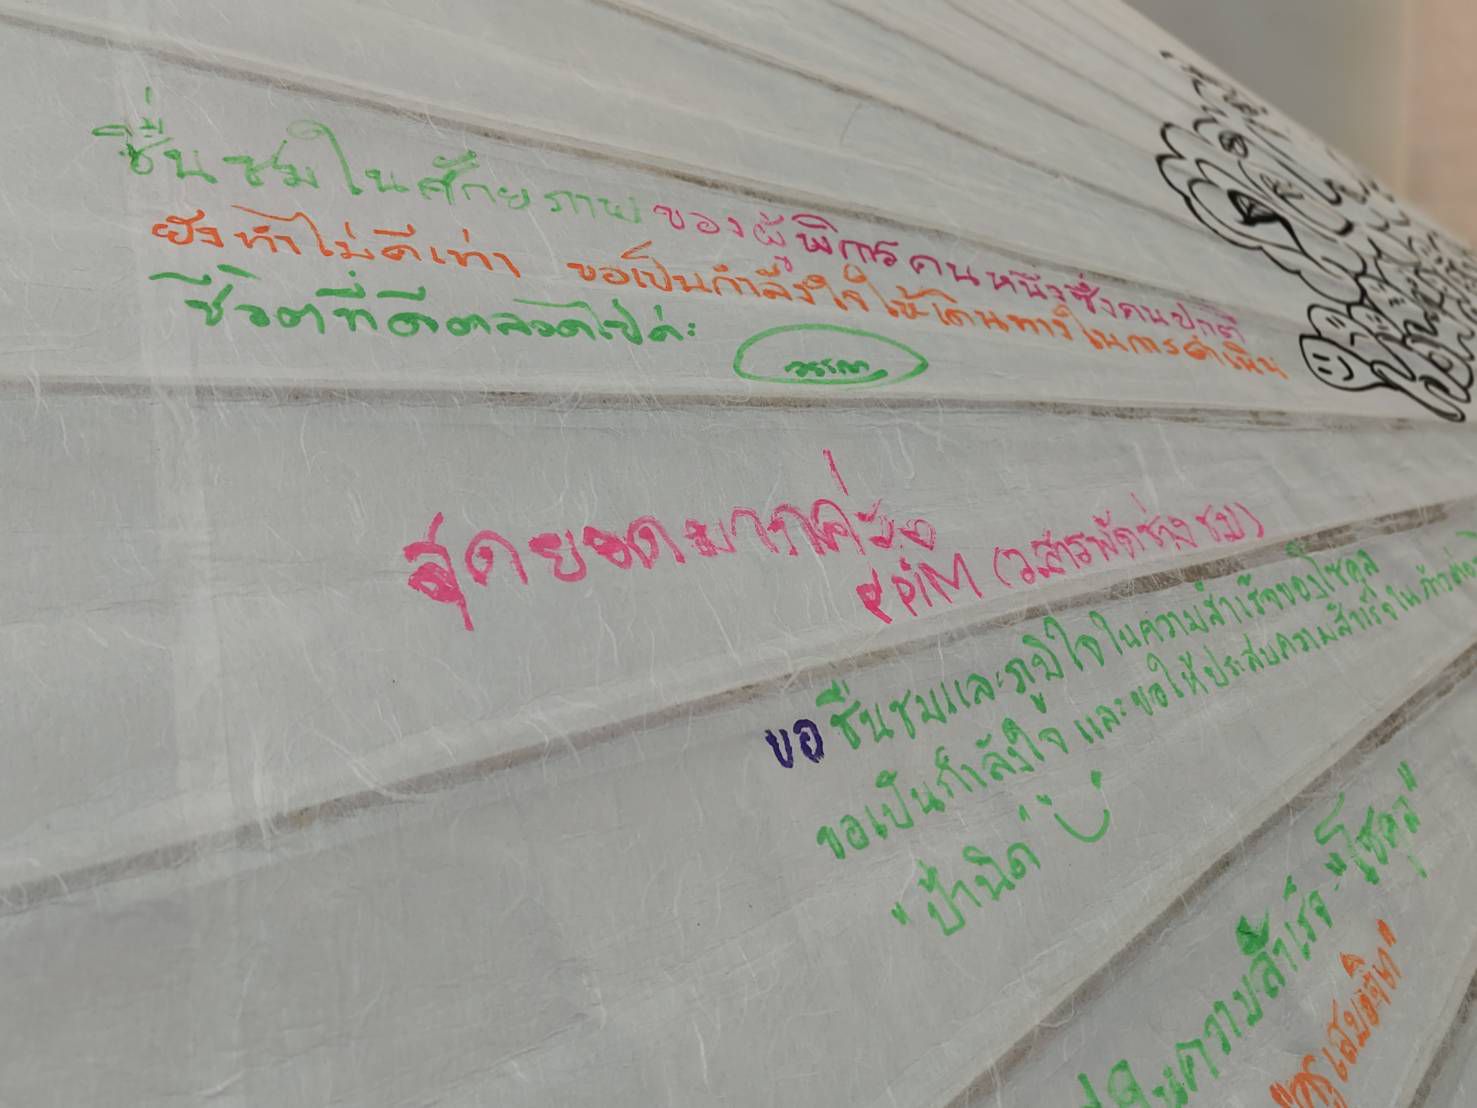 ชื่นชมในศักยภาพของผู้พิการคนหนึ่งซึ่งคนปกติ
ยังทำไม่ดีเท่า ขอเป็นกำลังใจให้เดินทางในการดำเนิน
ชีวิตที่ดีตลอดไปค่ะ
วรรณา
สุดยอดมากค่ะ
PiM (ว.สารพัดช่างชบ)
ขอชื่นชมและภูมิใจในความสำเร็จของโชคุล
ขอเป็นกำลังใจ และขอให้ประสบความสำเร็จใน
"ป้านิด"
ความสำเร็จ "โชคุล"